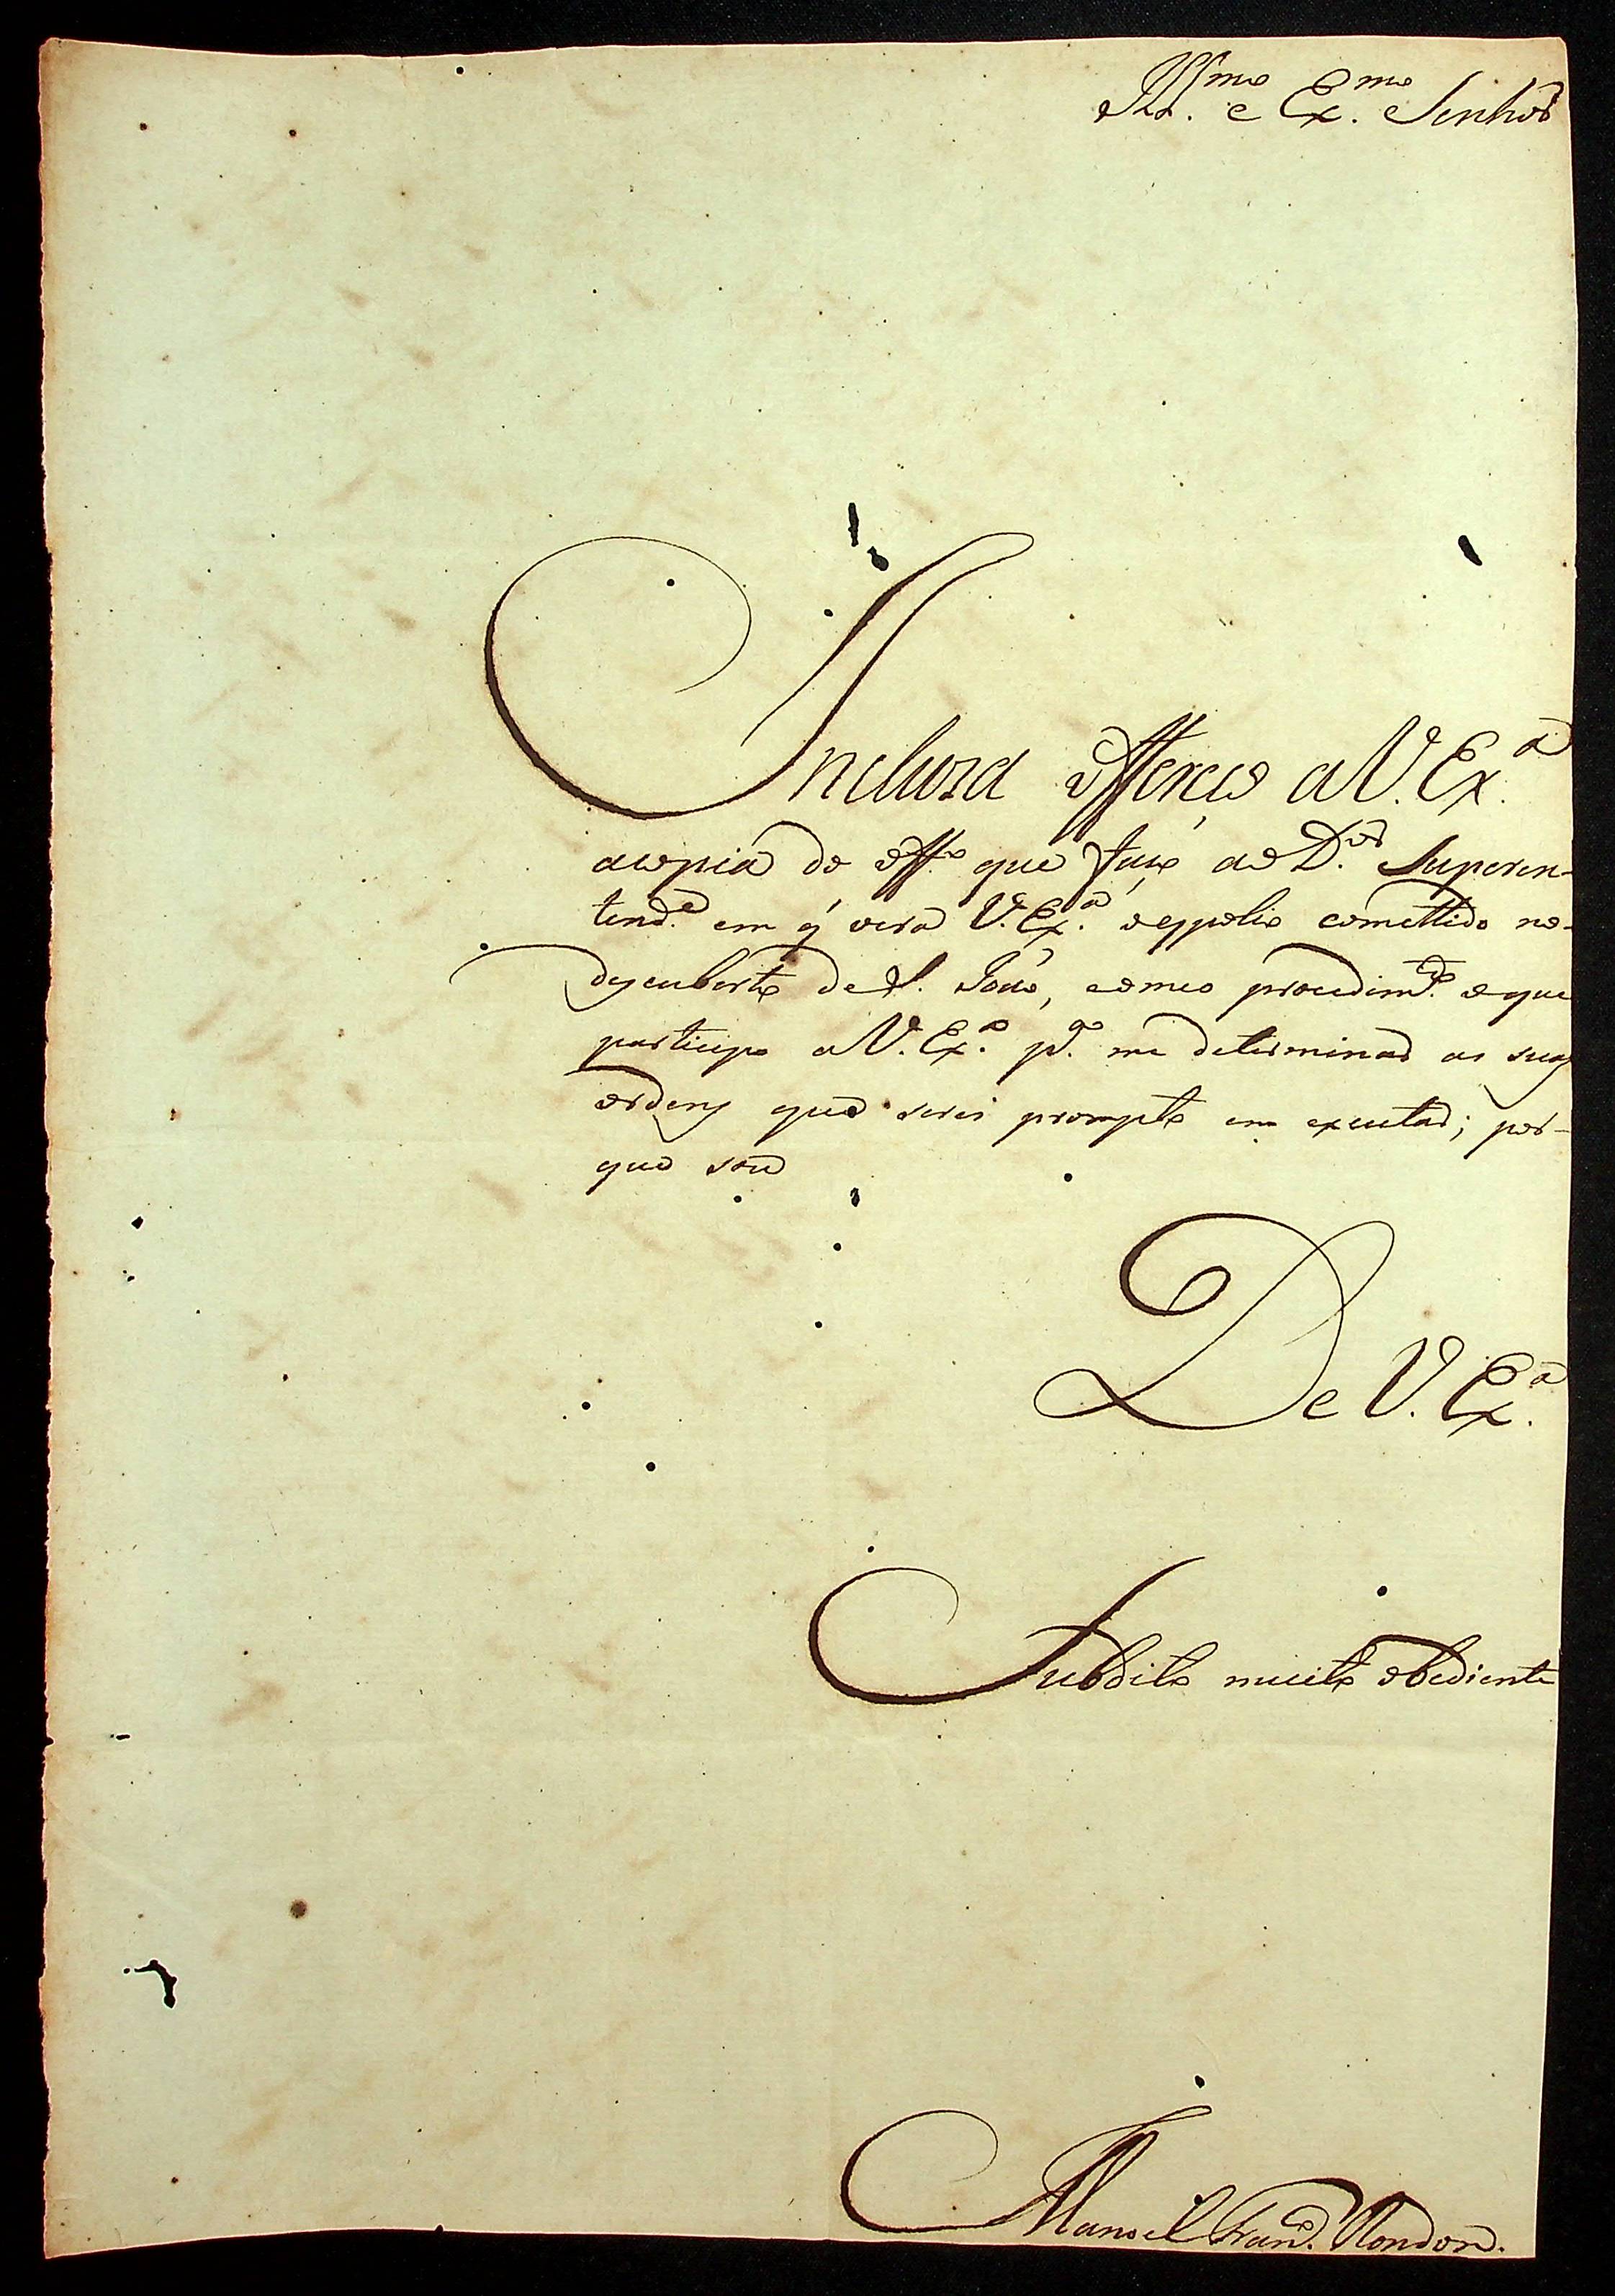 Ill.mo e Ex.mo Senhor
Incluza offereço a V. Ex.a
acopia do off.o que fasso ao D.or Superen-
tend.e em q̃ verá V. Ex.a oespolio comettido no
descuberto de S. João, eomeo procedim.to oque
participo a V. Ex.a p.a me determinar as suas
ordens que serei prompto em executar; por-
que sou
De V. Ex.a
Subdito muito obediente
Manoel Fran.co Rondon.